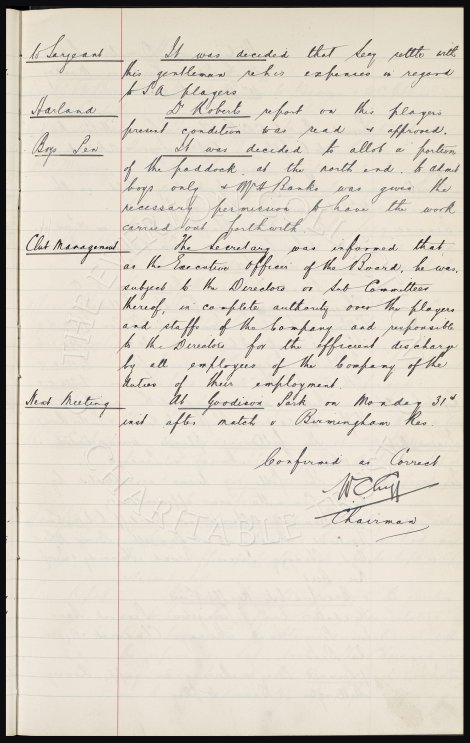 to Sargeant It was decided that Secy settle with
this gentleman re his expenses in regard
to S.A. players
Harland Dr Roberts report on this players
present condition was read & approved.
Boys Pen It was decided to allot a portion
of the paddock at the north end. to admit
boys only & Mr H Banks was given the
necessary permission to have the work
carried out forthwith.
Club Management The Secretary was informed that
as the Executive Officer of the Board, he was,
subject to the Directors or Sub Committees
thereof, in complete authority over the players
and staffs of the Company and responsible
to the Directors for the efficient discharge
by all employees of the Company of the
duties of their employment.
Next Meeting At Goodison Park on Monday 31st
inst after match v Birmingham Res.
Confirmed as Correct
W.C. Cuff
Chairman
CHARITABLE